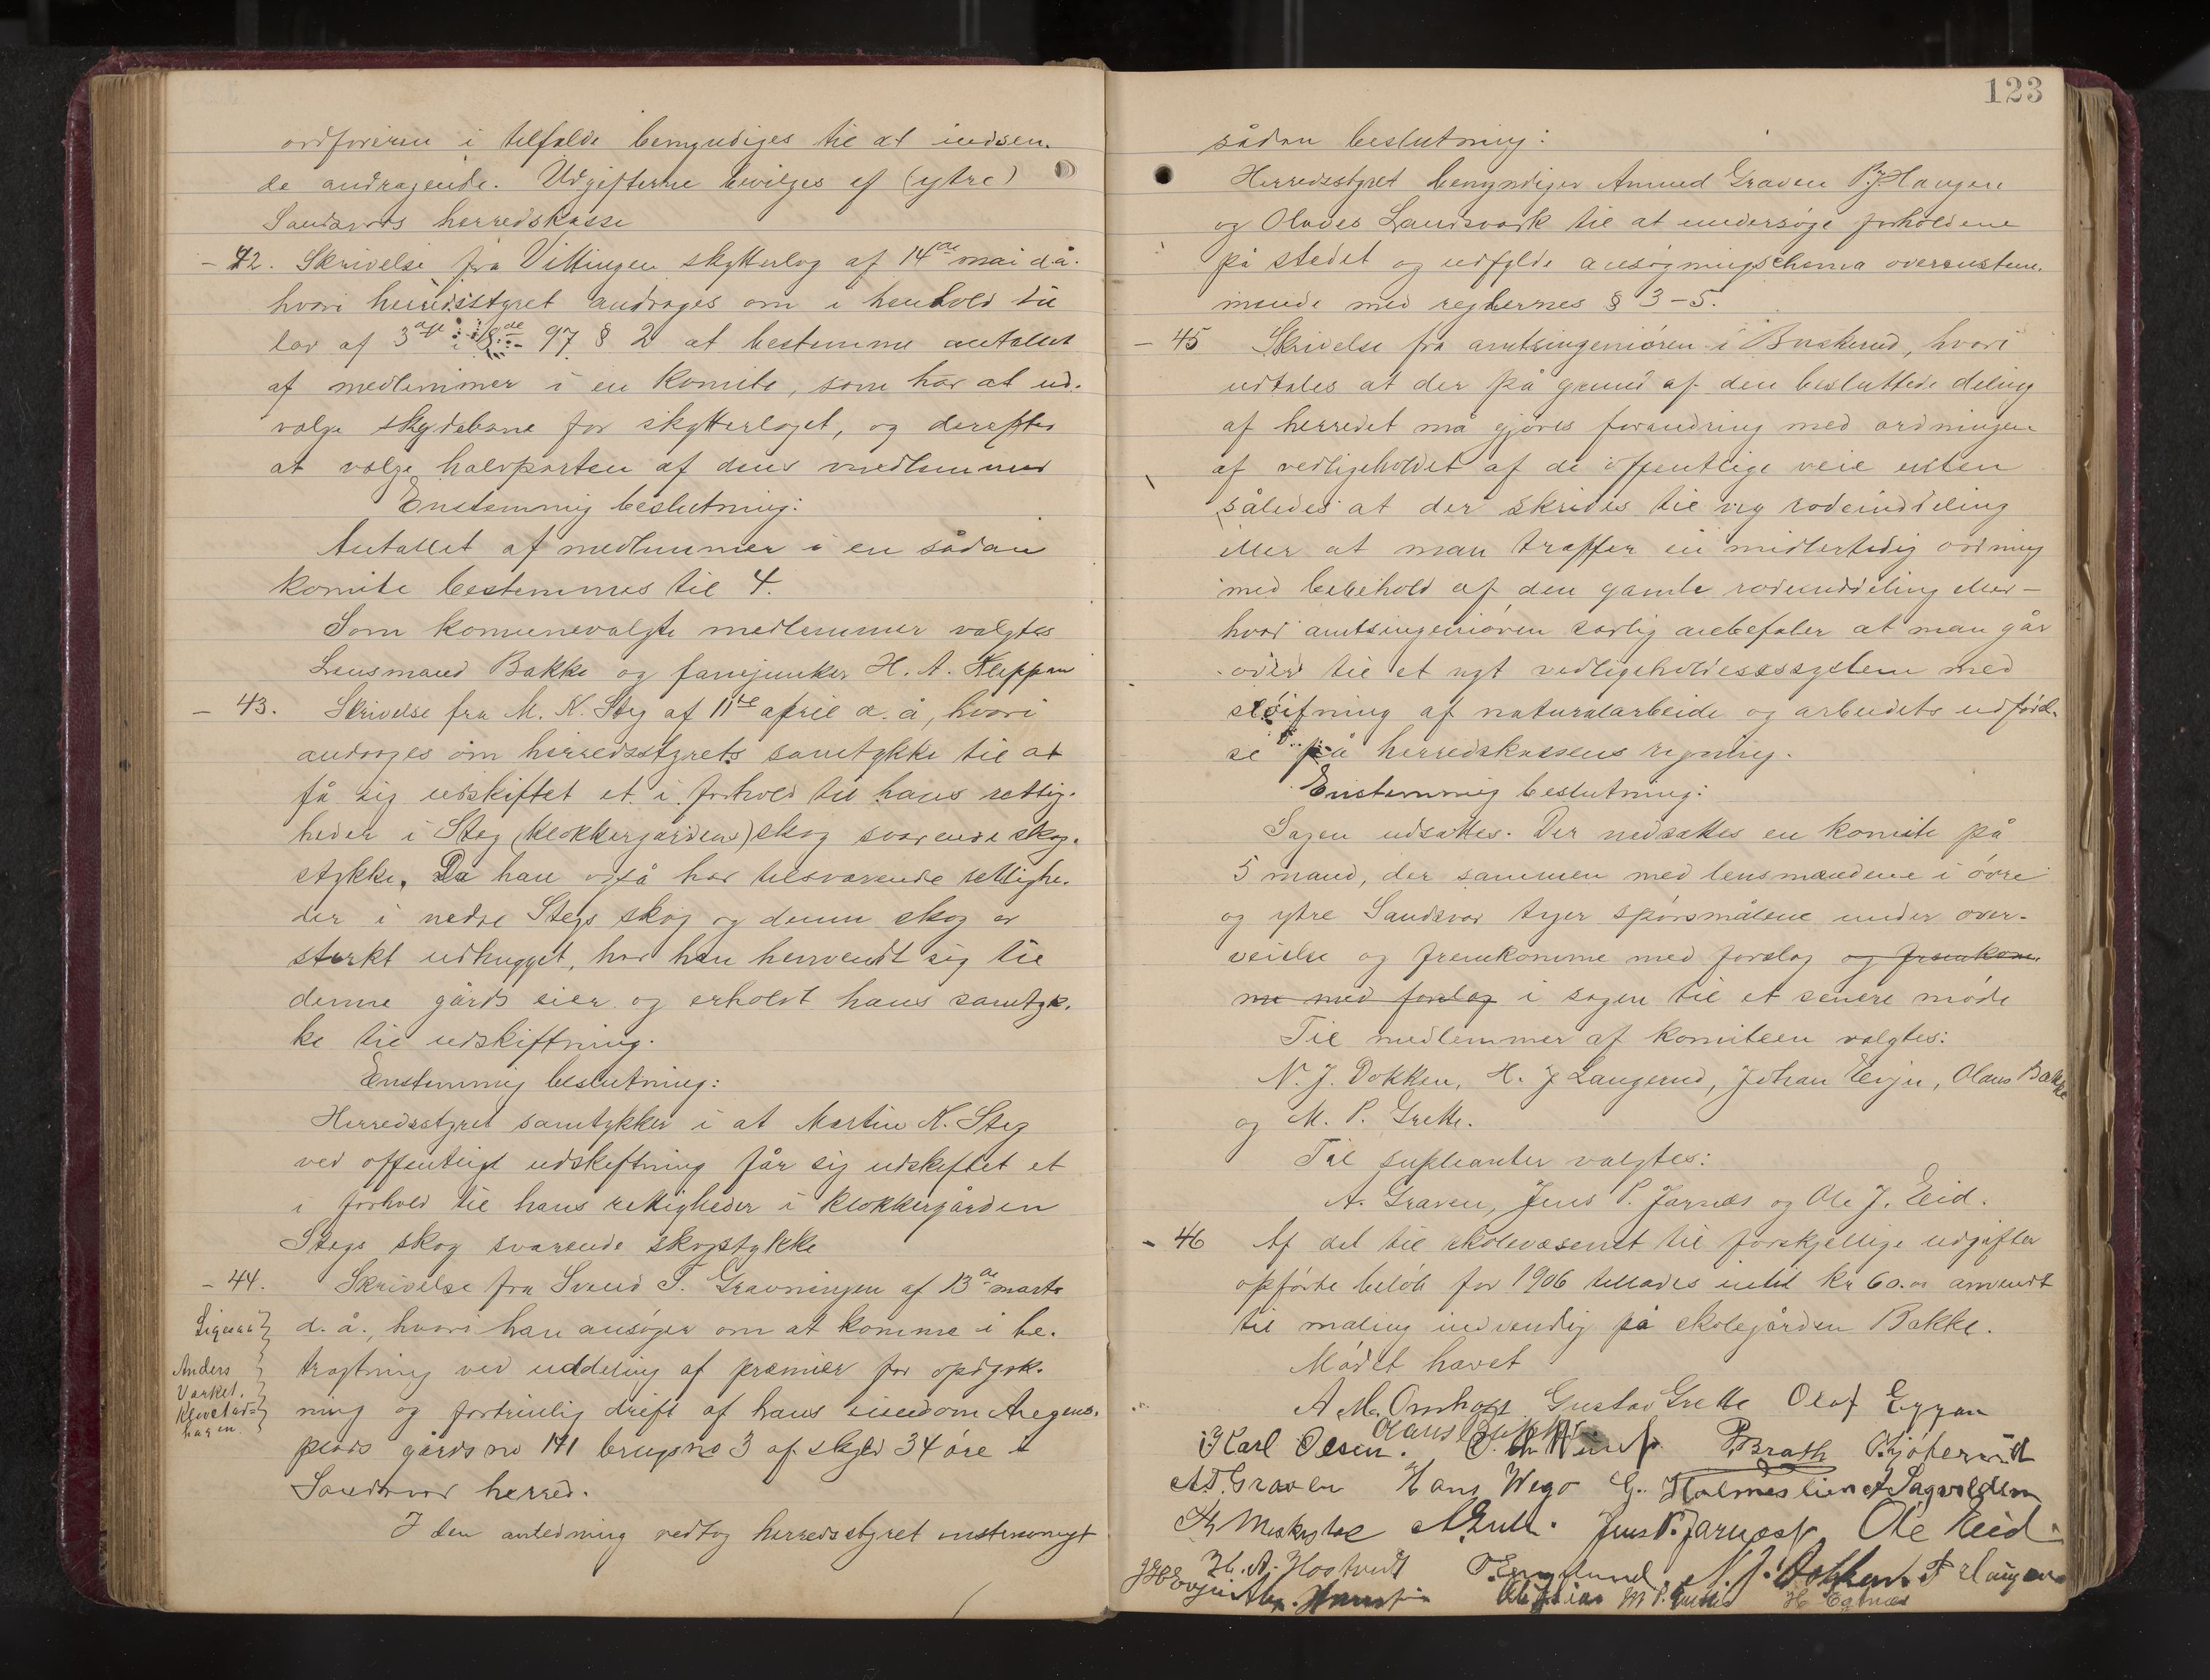 ordføreren i tilfælde bemyndiges til at indsen-
de andragende. Udgifterne bevilges af (ytre)
Sandsværs herredskasse
- 42. Skrivelse fra Vittingen skytterlag af 14de mai d.å.
hvori herredsstyret andrages om i henhold til
lov af 97 § 2 at bestemme antallet
af medlemmer i en komite, som har at ud-
vælge skydebane for skytterlaget, og derefter
at vælge halvparten af dens medlemmer
Enstemmig beslutning:
Antallet af medlemmer i en sådan
komite bestemmes til 4.
Som komunevalgte medlemmer valgtes
Lensmand Bakke og fanejunker H. A. Kleppan
- 43. Skrivelse fra M. N. Steg af 11te april d. å, hvori
andrages om herredsstyrets samtykke til at
få sig udskiftet et i forhold til hans rettig-
heder i Steg (klokkergårdens) skog svarende skog-
stykke. Da han også har tilsvarende rettighe-
der i nedre Stegs skog og denne skog er
sterkt udhugget, har han henvendt sig til
denne gårds eier og erholdt hans samtyk-
ke til udskiftning.
Enstemmig beslutning:
Herredsstyret samtykker i at Martin N. Steg
ved offentligt udskiftning får sig udskiftet et
i forhold til hans rettigheder i klokkergården
Stegs skog svarende skogstykke
- 44. Skrivelse fra Svend T. Gravningen af 13de marts
d. å., hvori han ansøger om at komme i be-
tragtning ved uddeling af præmier for opdyrk-
ning og fortrinlig drift af hans eiendom Aregens-
plads gårds no 141 brugs no 3 af skyld 34 øre i
Sandsvær herred.
I den anledning vedtog herredsstyret enstemmigt
Ligesaa
Anders
123
sådan beslutning:
Herredsstyret bemyndiger Amund Graven P. J. Haugen
og Olaves Landsværk til at undersøge forholdene
på stedet og udfylde ansøgningschema overenstem-
mende med reglernes § 3-5.
- 45 Skrivelse fra amtsingeniøren i Buskerud, hvori
udtales at der på grund af den besluttede deling
af herredet må gjøres forandring med ordningen
af vedligeholdet af de offentlige veie enten
således at der skrides til ny rodeinddeling
eller at man træffer en midlertidig ordning
med bebehold af den gamle rodeinddeling eller -
hvad amtsingeniøren særlig anbefaler at man går
over til et nyt vedligeholdessystem med
sløifning af naturalarbeide og arbeidets udførel-
se på herredskassens regning.
Enstemmig beslutning:
Sagen udsættes. Der nedsættes en komite på
5 mænd, der sammen med lensmændene i øvre
og ytre Sandsvær tager spørsmålene under over-
veielse og fremkomme med forslag og fremkom-
me med forslag i sagen til et senere møde
Til medlemmer af komiteen valgtes:
N. J. Dokken, H. J Langerud, Johan Evju, Olaus Bakke
og M. P. Grette.
Til supleanter valgtes:
A. Graven, Jens P. Jarnæs og Ole J. Eid.
- 46 Af det til skolevæsenet til forskjellige udgifter
opførte beløb for 1906 tillades indtil kr 60.00 anvendt
til maling indvendig på skolegården Bakke.
Mødet hævet
A. M. Omholt Gustav Grette Olaf Eggan
Olaus Bakke
Karl Olsen. P. Bråth
A. T. Graven Hans Wego G. Holmeslien A Sagvolden
Jens P. Jarnæs Ole Eid
H. A. Hostvedt T. Englund N. J. Dokken
M P. Grette H Egtnæs